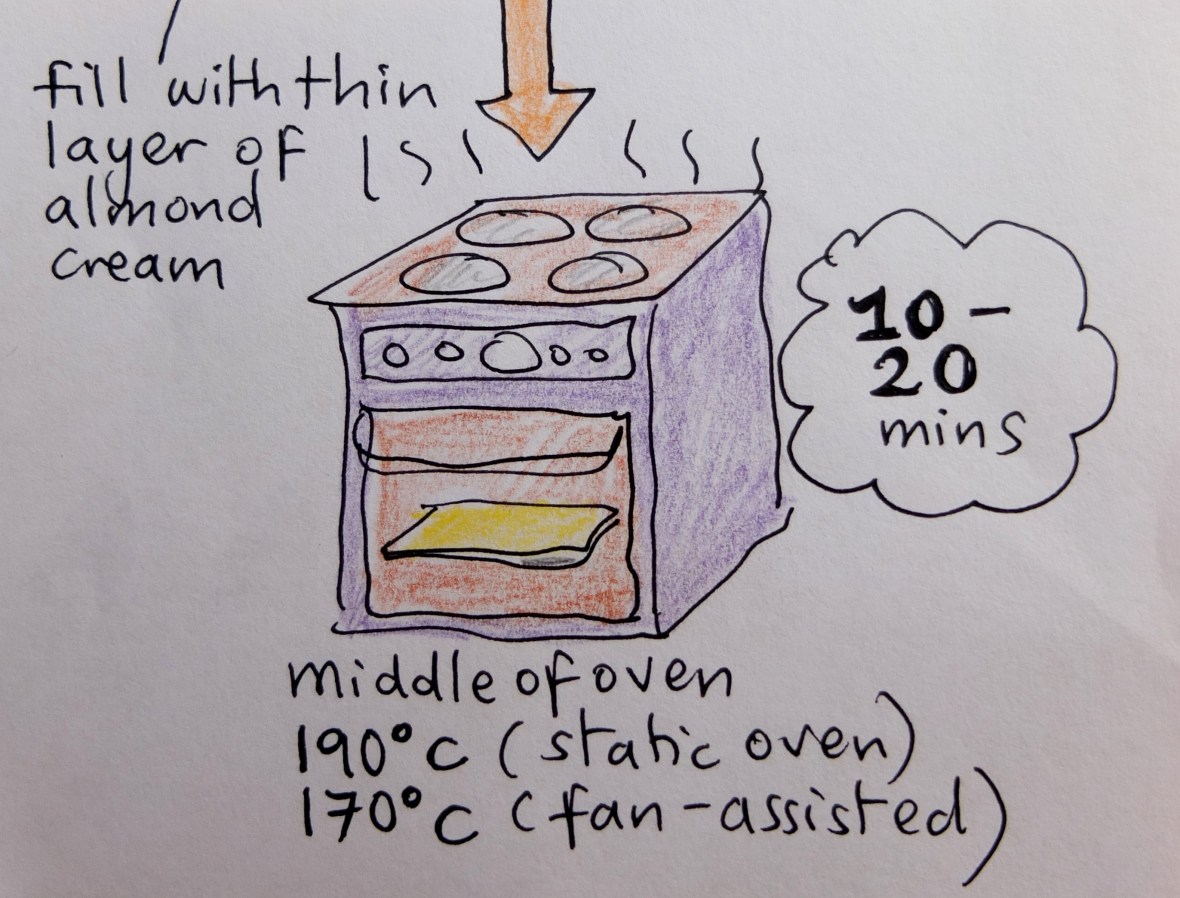 fill with thin
layer of
almond
cream
10 -
20
mins
middle of oven
190°c (static oven)
170°c (fan-assisted)